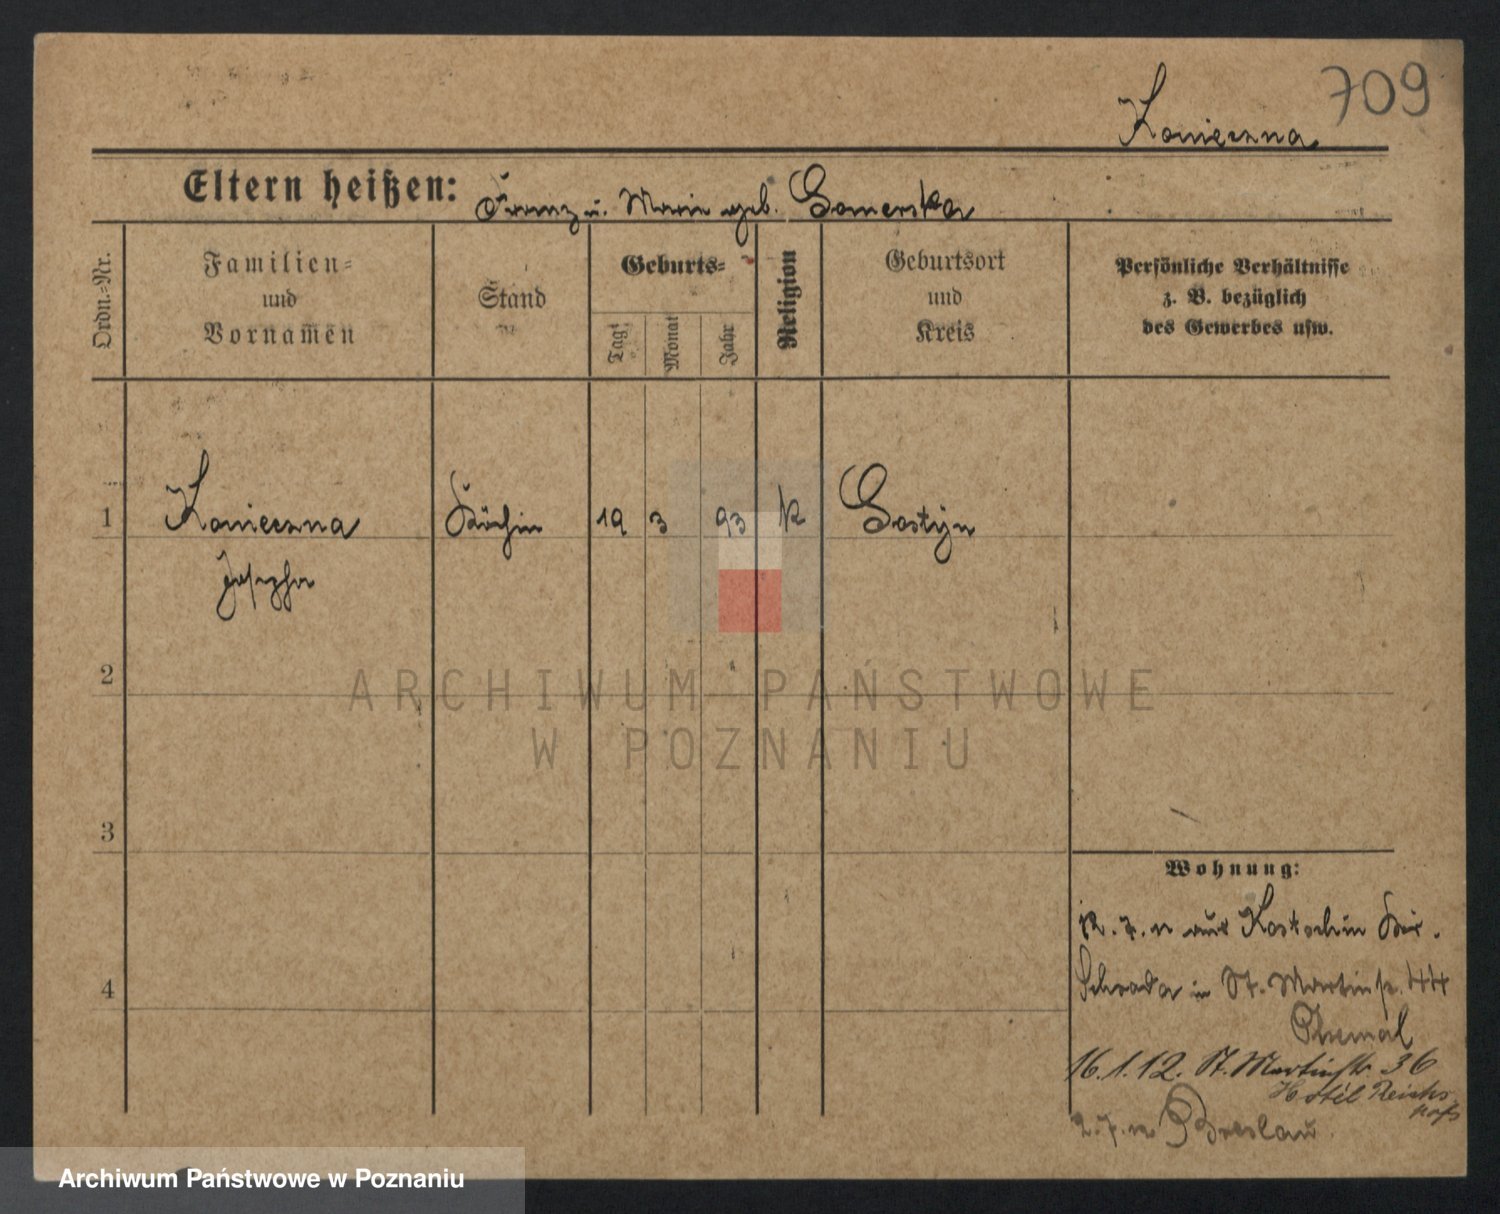 709
Konieczna
Eltern heißen: Franz u. Marie geb. Gomerska
Ordn.-Nr.
Familien-
und
Vornamen
Stand
Geburts-
Tag
Monat
Jahr
Religion
Geburtsort
und
Kreis
Persönliche Verhältnisse
z. B. bezüglich
des Gewerbes usw.
1 Konieczna Köchin 19 3 93 k Gostyn
Josepha
2
ARCHIWUM PAŃSTWOWE
W POZNANIU
3
4
Wohnung:
12. 7. 11 aus Kostschin Kr.
Schroda in St. Martinstr. 44
16.1.12. St. Martinstr. 36
Hotel Reichs
hof
2.7.12 Breslau
Archiwum Państwowe w Poznaniu